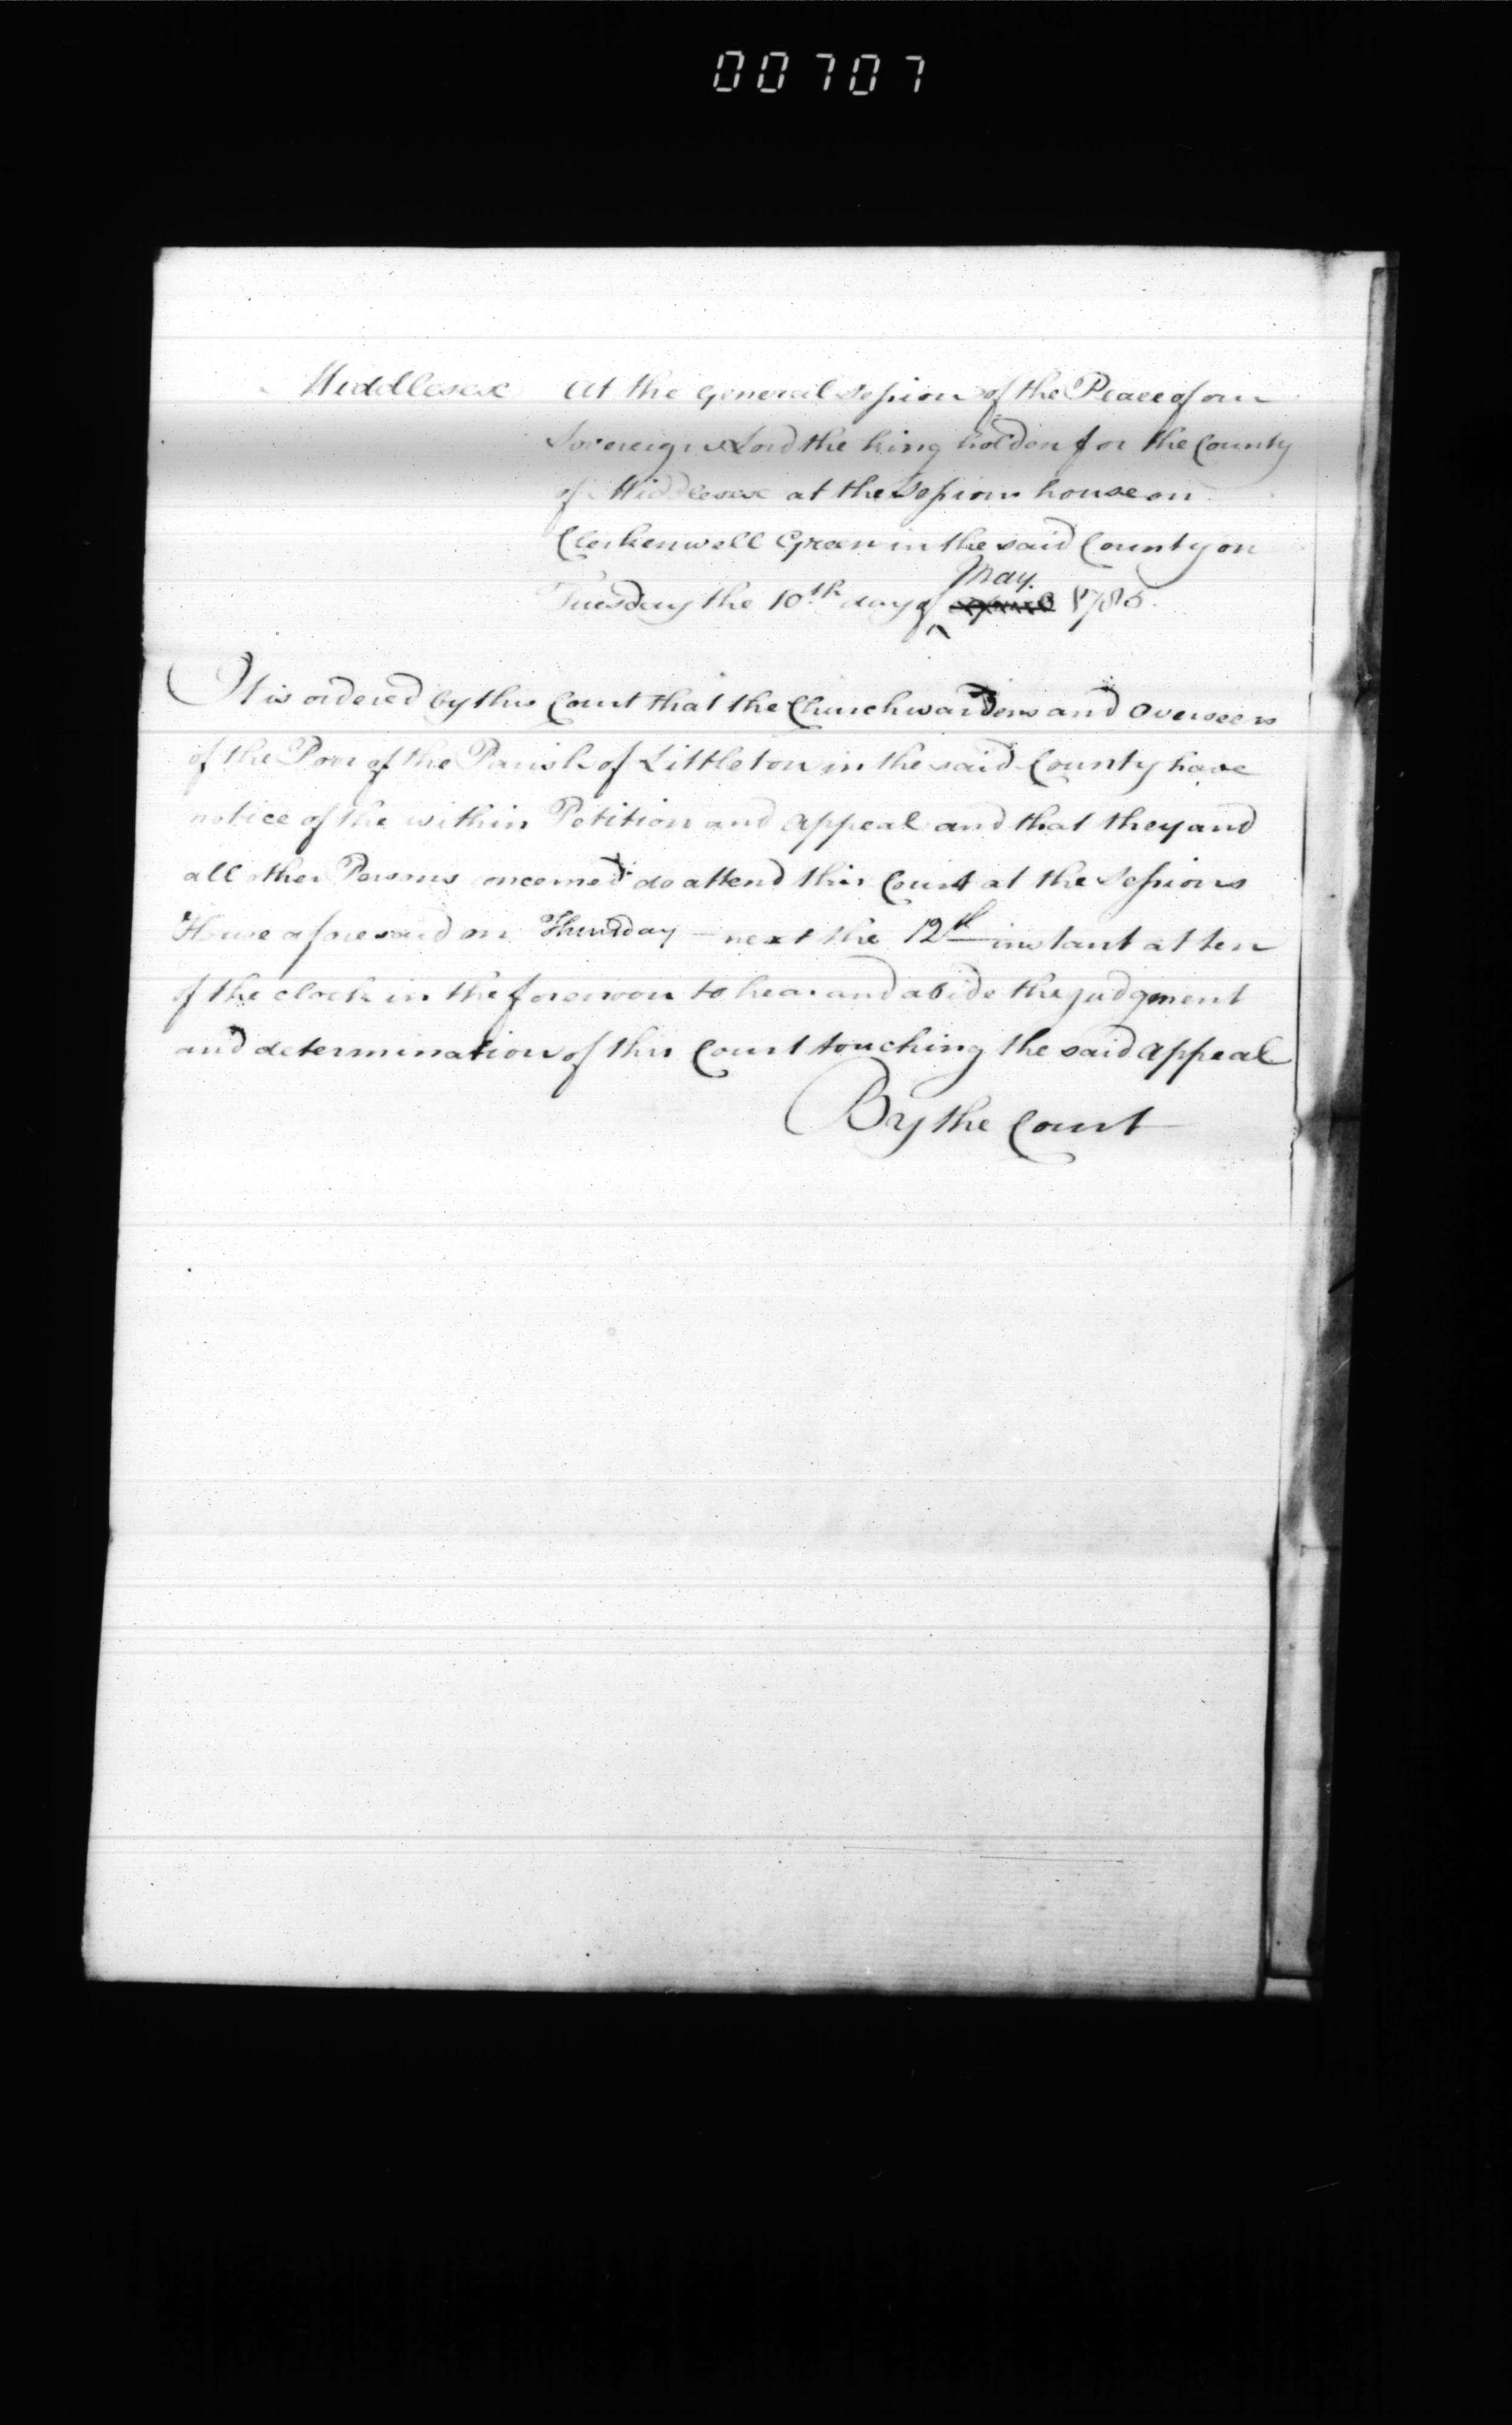 00707
Middlesex At the General Session of the Peace of our
Sovereign Lord the King holden for the County
of Middlesex at the Session house on
Clerkenwell Green in the said County on
May.
Tuesday the 10th day of April 1785.
It is ordered by this Court that the Churchwardens and Overseers
of the Poor of the Parish of Littleton in the said County have
notice of the within Petition and Appeal and that they and
all other Persons concerned do attend this Court at the Sessions
House aforesaid on Thursday next the 12th instant at ten
of the clock in the forenoon to hear and abide the judgment
and determination of this Court touching the said Appeal
By the Court